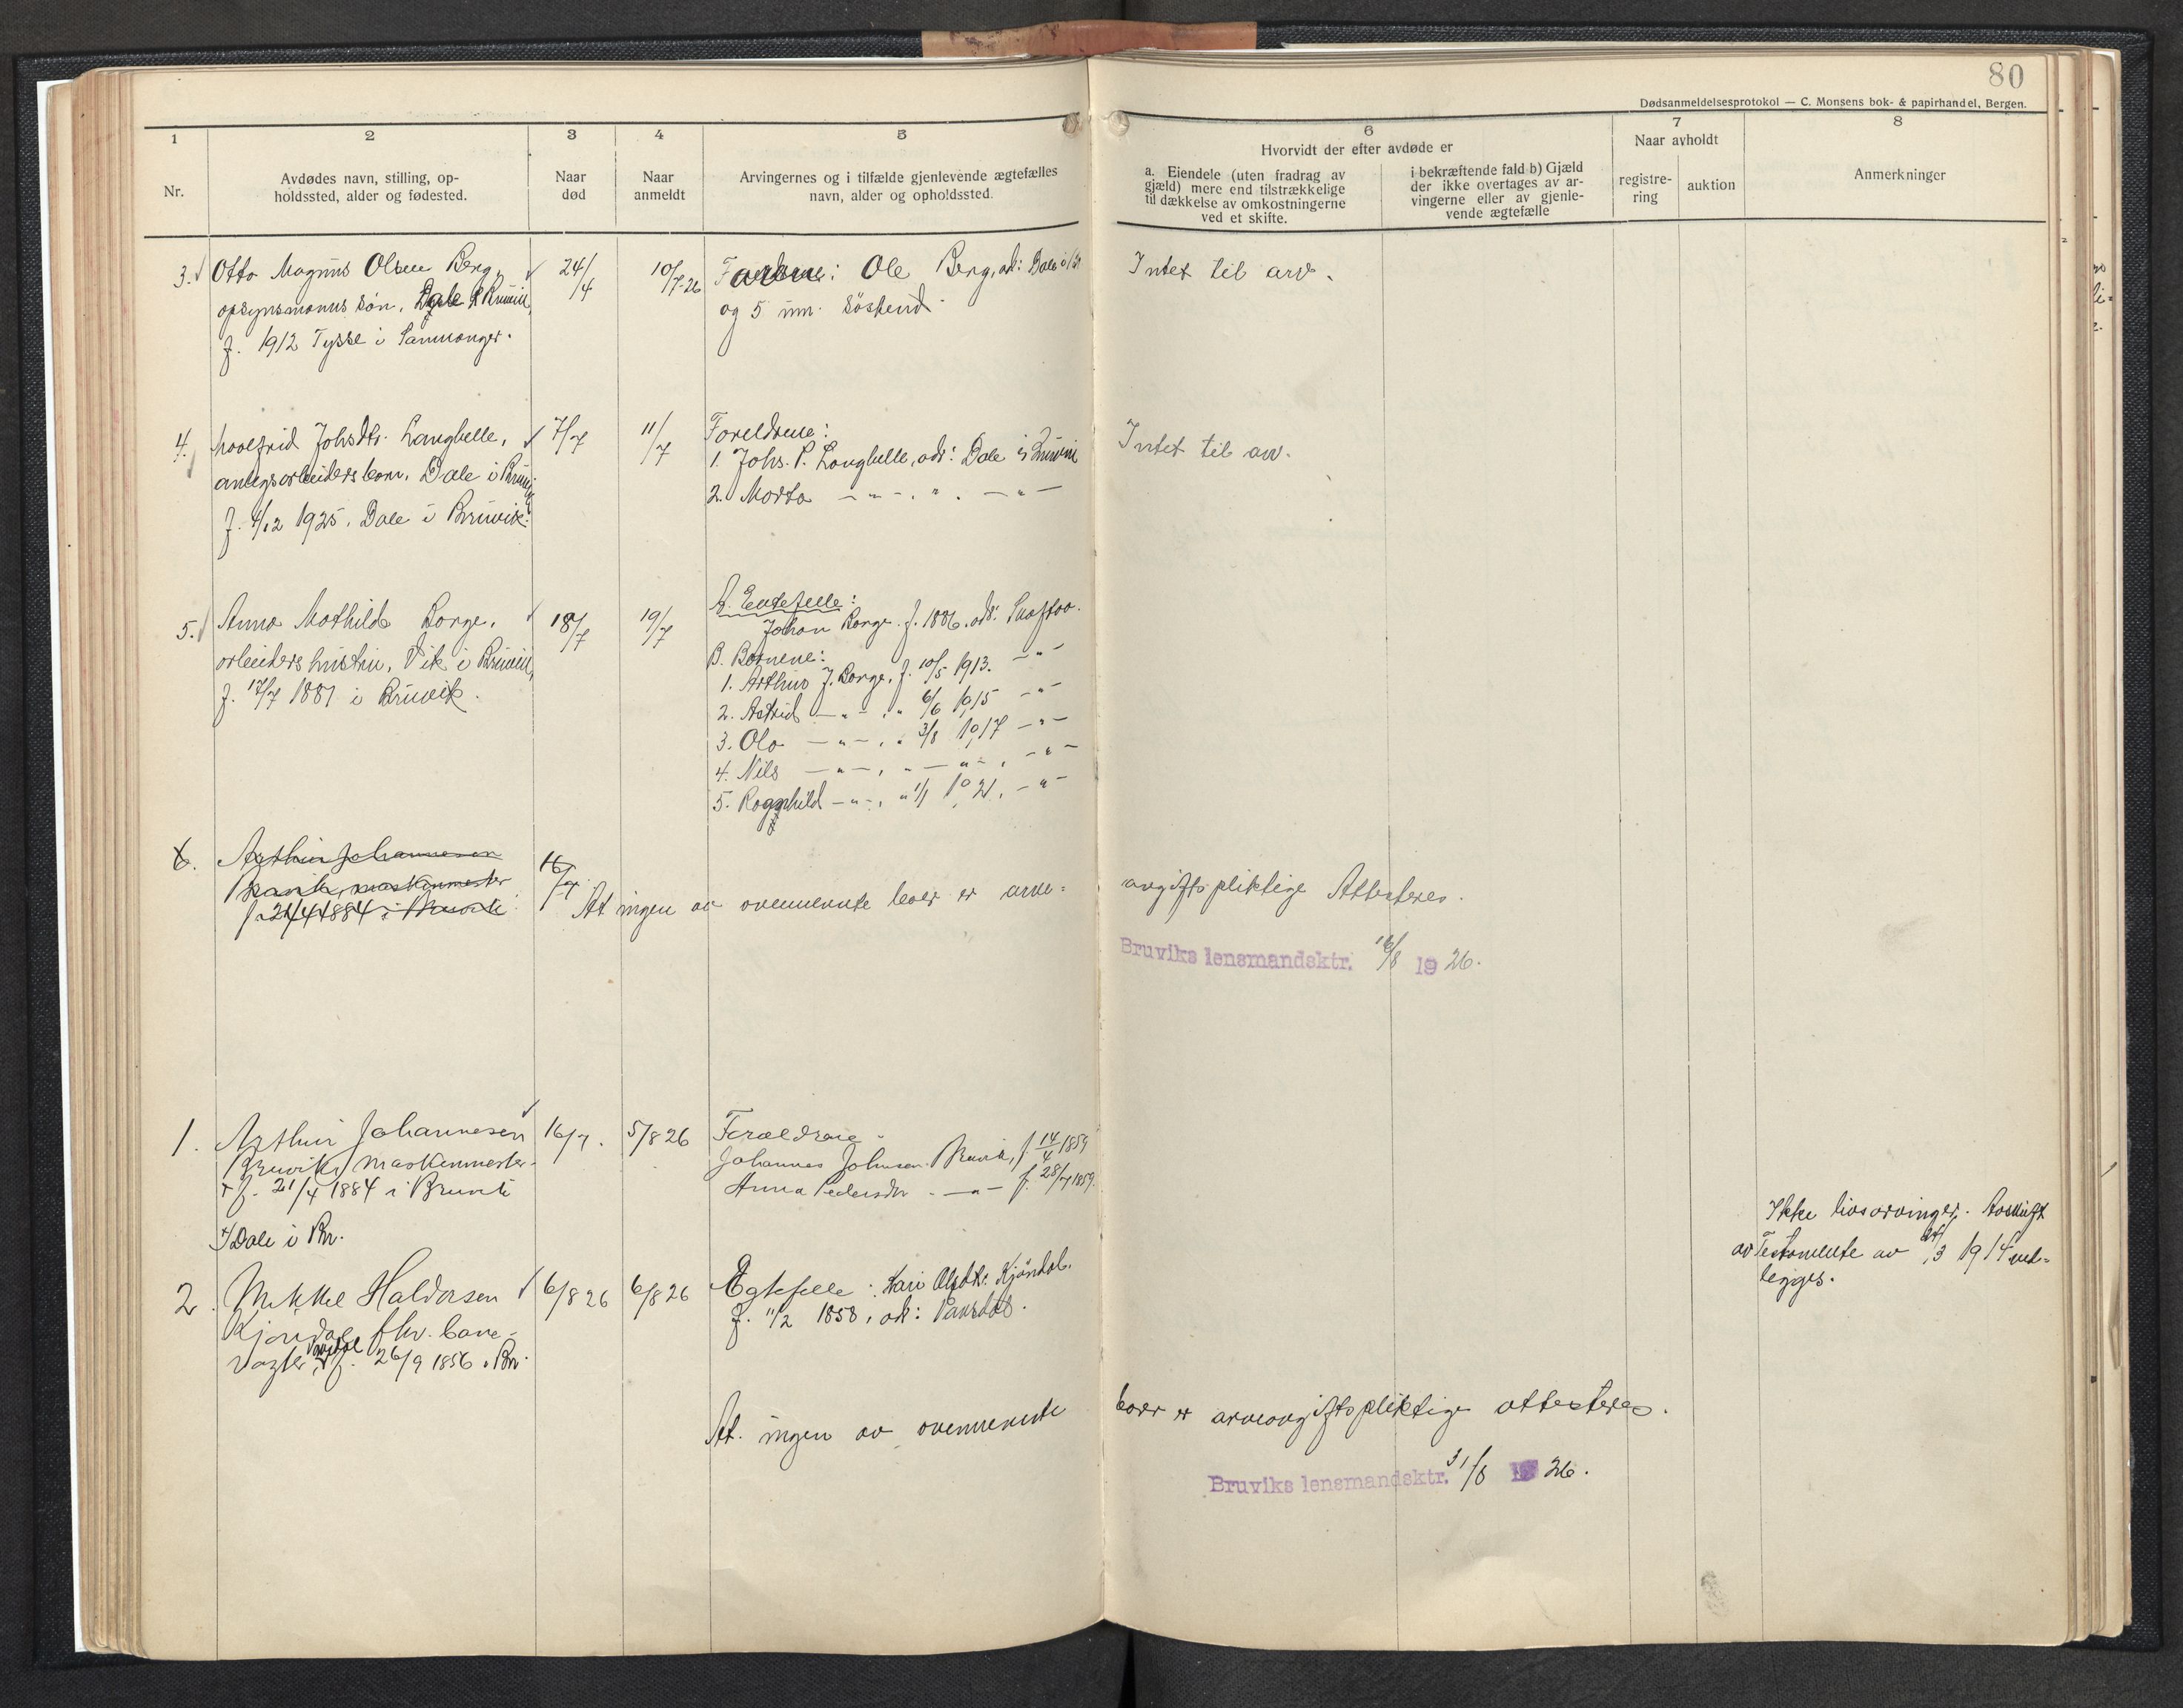 80
Dødsanmeldelsesprotokol — C. Monsens bok- & papirhandel, Bergen.
1
2
3
4
5
6
7
8
Nr.
Avdødes navn, stilling, op-
holdssted, alder og fødested.
Naar
død
Naar
anmeldt
Arvingernes og i tilfælde gjenlevende ægtefælles
navn, alder og opholdssted.
Hvorvidt der efter avdøde er
a. Eiendele (uten fradrag av
gjæld) mere end tilstrækkelige
til dækkelse av omkostningerne
ved et skifte.
i bekræftende fald b) Gjæld
der ikke overtages av ar-
vingerne eller av gjenle-
vende ægtefælle
Naar avholdt
registre-
ring
auktion
Anmerkninger
3. Otto Magnus Olsen Berg,
opsynsmanns søn, Dale i Bruvik,
f. 1912 Tysse i Samnanger.
24/4
10/7-26
Ole Berg, ad: Dale i
og 5 um. søskend.
Intet til arv.
4. Johsdtr. Langhelle,
anlegsarbeiders barn, Dale i Bruvik
f. 4/12 1925, Dale i Bruvik.
7/7
11/7
Foreldrene:
1. Johs. P. Langhelle, adr: Dale i Bruvik
2. Marta — " — . " . — " —
Intet til arv.
5. Anna Mathilde Borge,
arbeiders hustru, Vik i Bruvik,
f. 17/7 1881 i Bruvik.
18/7
19/7
A. Egtefelle:
Johan Borge. f. 1886. adr:
B. Barnene:
1. Arthur J. Borge, f. 10/5 1913. — " —
2. Astrid — " — , " 6/6 1915 — " —
3. Ola — " — , " 3/8 1917 — " —
4. Nils — " — , " — " — , — " —
5. Ragnhild — " — , " 1/1 1921, — " —
6. Arthur Johannesen
Bruvik, maskinmester
f. 21/4 1884 i Bruvik
16/7
At ingen av ovennevnte boer er arve=
avgiftspliktige Attesteres.
Bruviks lensmandsktr. /8 1926.
1. Arthur Johannesen
Bruvik, maskinmester
f. 21/4 1884 i Bruvik
Dale i Br.
16/7.
5/8 26
Forældrene
Johannes Johnsen Bruvik, f. 14/4 1859
Anna Pedersdtr — " — f. 28/7 1859.
2. Mikkel Haldorsen
Kjøndal, fhv. bane-
vogter, f. 26/9 1856 i Br.
6/8 26
6/8 26
Egtefelle: Kari Olsdtr. Kjøndal.
f. 11/2 1858, ad: Vaksdal.
Ikke livsarvinger. Avskrift
av Testamente av /3 1914 ved=
legges.
At ingen av ovennevnte
boer er arveavgiftspliktige attesteres.
Bruviks lensmandsktr. 31/8 1926.